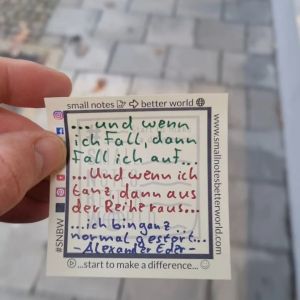 small notes better world
... und wenn
ich fall, dann
fall ich auf...
... und wenn ich
tanz, dann aus
der Reihe raus...
...ich bin ganz
normal gestört...
- Alexander Eder -
...start to make a difference...
#SNBW
www.smallnotesbetterworld.com